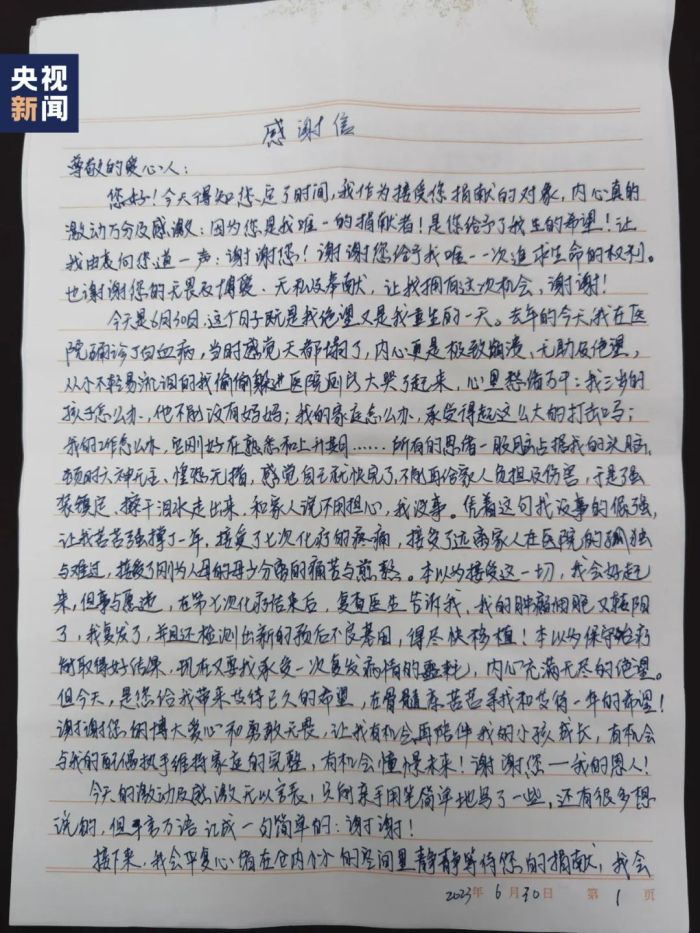 央视
新闻
感谢信
尊敬的爱心人：
您好！今天得知您定了时间，我作为接受您捐献的对象，内心真的
激动万分及感激：因为您是我唯一的捐献者！是您给予了我生的希望！让
我由衷向您道一声：谢谢您！谢谢您给予我唯一一次追求生命的权利。
也谢谢您的无畏及博爱、无私及奉献，让我拥有这次机会，谢谢！
今天是6月30日，这个日子既是我绝望又是我重生的一天。去年的今天，我在医
院确诊了白血病，当时感觉天都塌了，内心真是极致崩溃、无助及绝望，
从小不轻易流泪的我偷偷躲进医院厕所大哭了起来，心里愁绪万千：我三岁的
孩子怎么办，他不能没有妈妈；我的家庭怎么办，承受得起这么大的打击吗；
我的工作怎么办，它刚好在熟悉和上升期……所有的思绪一股脑占据我的头脑，
顿时六神无主、惶恐无措，感觉自己就快完了，不能再给家人负担及伤害，于是了强
装镇定、擦干泪水走出来，和家人说不用担心，我没事。凭着这句我没事的倔强，
让我苦苦强撑了一年，接受了七次化疗的疼痛，接受了远离家人在医院的孤独
与难过，接受了刚为人母的母少分离的痛苦与煎熬。本以为接受这一切，我会好起
来，但事与愿违，在第七次化疗结束后，复查医生告诉我，我的肿瘤细胞又转阳
了，我复发了，并且还检测出新的预后不良基因，得尽快移植！本以为保守治疗
能取得好结果，现在又要我承受一次复发病情的噩耗，内心充满无尽的绝望。
但今天，是您给我带来等待已久的希望，在骨髓库苦苦寻找和等待一年的希望！
谢谢您的博大爱心和勇敢无畏，让我有机会再陪伴我的小孩成长，有机会
与我的配偶执手维持家庭的完整，有机会憧憬未来！谢谢您—我的恩人！
今天的激动及感激无以言表，只能亲手用笔简单地写了一些，还有很多想
说的，但千言万语让成一句简单的：谢谢！
接下来，我会平复心绪在仓内小小的空间里静静等待您的捐献，我会
2023年 6月30日 第 1 页